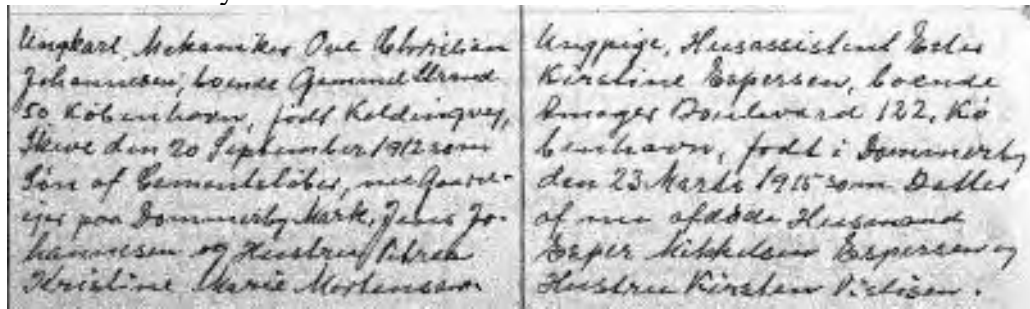 Ungkarl, Mekaniker Ove Christian
Johannesen, boende Gammel Strand
50 København, født Koldingvej,
Skive den 20 September 1912 som
Søn af Cementstøber, nu Gaard-
ejer paa Dommerby Mark, Jens Jo-
hannesen og Hustru Petrea
Kristine Marie Mortensen.
Ungpige, Husassistent Ester
Kirstine Espersen, boende
Amager Boulevard 122, Kø
benhavn, født i Dommerby
den 23 Marts 1915 som Datter
af nu afdøde Husmand
Esper Mikkelsen Espersen og
Hustru Kirsten